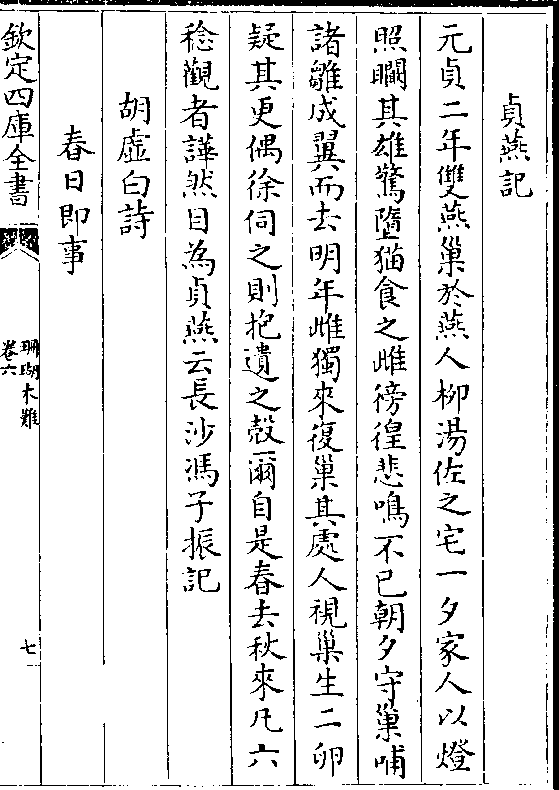 貞燕記
元貞二年雙燕巢於燕人柳湯佐之宅一夕家人以燈
照䦨其雄驚墮猫食之雌徬徨悲鳴不已朝夕守巢哺
諸雛成翼而去明年雌獨來復巢其處人視巢生二卵
疑其更偶徐伺之則抱遺之殻爾自是春去秋來凡六
稔觀者譁然目為貞燕云長沙馮子振記
胡虛白詩
春日即事
欽定四庫全書
珊瑚木難
卷六
七